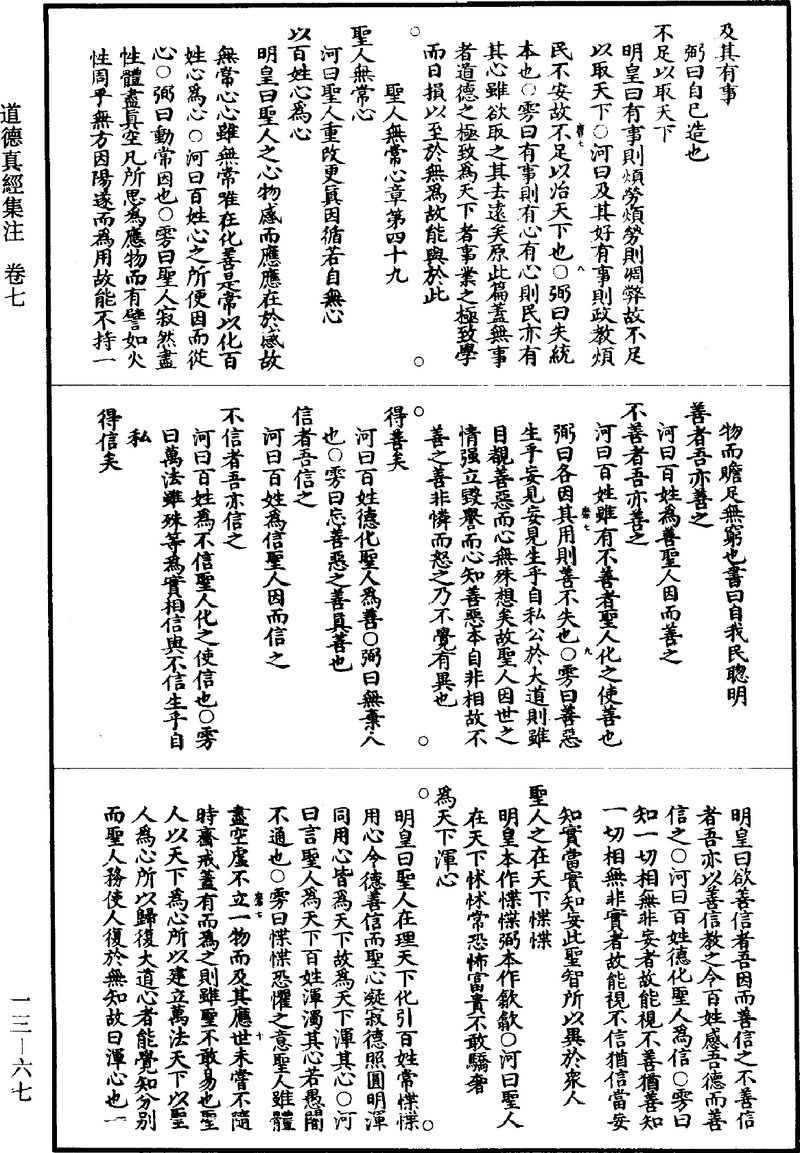 及其有事
弼曰自已造也
不足以取天下
明皇曰有事則煩勞煩勞則凋弊故不足
以取天下○河曰及其好有事則政教煩
民不安故不足以治天下也○弼曰失統
本也○雱曰有事則有心有心則民亦有
其心雖欲取之其去遠矣原此篇蓋無事
者道德之極致為天下者事業之極致學
而日損以至於無為故能與於此
聖人無常心章第四十九
聖人無常心
河曰聖人重改更貴因循若自無心
以百姓心為心
明皇曰聖人之心物感而應應在於感故
無常心心雖無常唯在化善是常以化百
姓心為心○河曰百姓心之所便因而從
心○弼曰動常因也○雱曰聖人寂然盡
性體盡真空凡所思為應物而有譬如火
性周乎無方因陽遂而為用故能不持一
物而贍足無窮也書曰自我民聰明
善者吾亦善之
河曰百姓為善聖人因而善之
不善者吾亦善之
河曰百姓雖有不善者聖人化之使善也
弼曰各因其用則善不失也○雱曰善惡
生乎妄見妄見生乎自私公於大道則雖
目覩善惡而心無殊想矣故聖人因世之
情强立毀譽而心知善惡本自非相故不
善之善非憐而恕之乃不覺有異也
得善矣
河曰百姓德化聖人為善○弼曰無棄人
也○雱曰忘善惡之善真善也
信者吾信之
河曰百姓為信聖人因而信之
不信者吾亦信之
河曰百姓為不信聖人化之使信也○雱
曰萬法雖殊等為實相信與不信生乎自
私
得信矣
明皇曰欲善信者吾因而善信之不善信
者吾亦以善信教之令百姓感吾德而善
信之○河曰百姓德化聖人為信○雱曰
知一切相無非妄者故能視不善猶善知
一切相無非實者故能視不信猶信當妄
知實當實知妄此聖智所以異於衆人
聖人之在天下惵惵
明皇本作惵惵弼本作歙歙○河曰聖人
在天下怵怵常恐怖富貴不敢驕奢
為天下渾心
明皇曰聖人在理天下化引百姓常惵惵
用心令德善信而聖心凝寂德照圓明渾
同用心皆為天下故為天下渾其心○河
曰言聖人為天下百姓渾濁其心若愚闇
不通也○雱曰惵惵恐懼之意聖人雖體
盡空虛不立一物而及其應世未嘗不隨
時齋戒蓋有而為之則雖聖不敢易也聖
人以天下為心所以建立萬法天下以聖
人為心所以歸復大道心者能覺知分別
而聖人務使人復於無知故曰渾心也一
道德真經集注　卷七
一三—六七